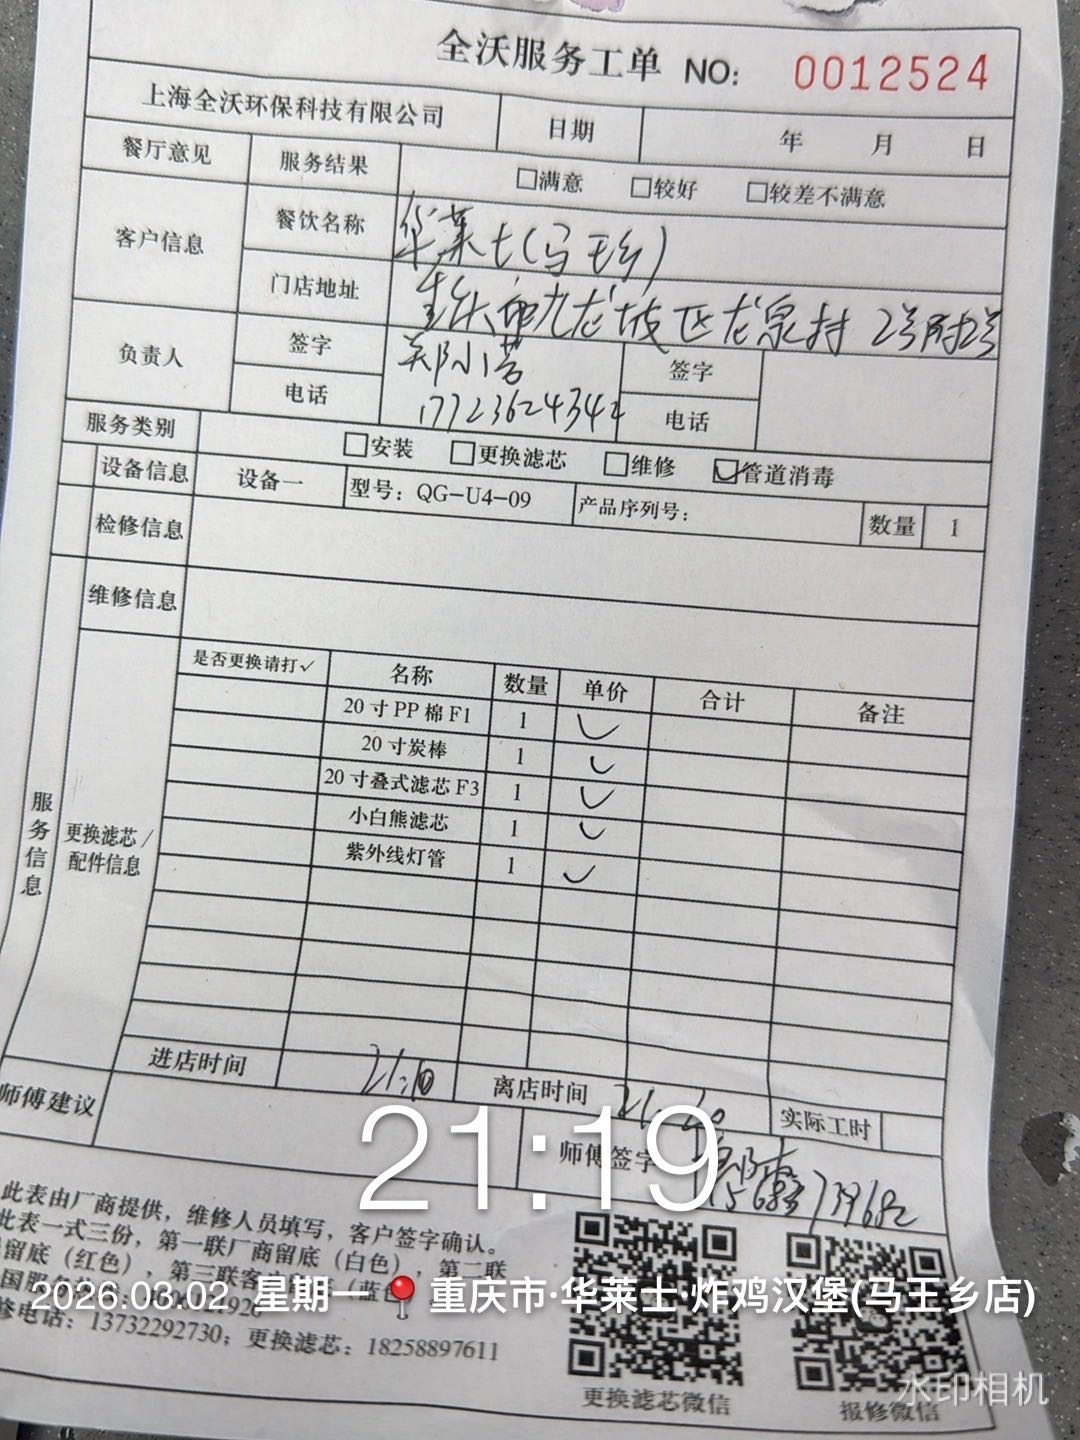 全沃服务工单 NO: 0012524
上海全沃环保科技有限公司 日期 年 月 日
餐厅意见 服务结果 □满意 □较好 □较差不满意
客户信息 餐饮名称 华莱士(马王乡)
门店地址 重庆市九龙坡区龙泉村 2号附2号
负责人 签字 郑小 签字
电话 电话
服务类别 □安装 □更换滤芯 □维修 ☑管道消毒
设备信息 设备一 型号: QG-U4-09 产品序列号: 数量 1
检修信息
维修信息
服务信息
更换滤芯/配件信息
是否更换请打✓ 名称 数量 单价 合计 备注
20寸PP棉F1 1 ✓
20寸炭棒 1 ✓
20寸叠式滤芯F3 1 ✓
小白熊滤芯 1 ✓
紫外线灯管 1 ✓
进店时间 21:10 离店时间 实际工时
师傅建议 师傅签字
21:19
此表由厂商提供，维修人员填写，客户签字确认。
此表一式三份，第一联厂商留底（白色），第二联
留底（红色），第三联客
2026.03.02 星期一 重庆市·华莱士·炸鸡汉堡(马王乡店)
修电话: 13732292730; 更换滤芯: 18258897611
更换滤芯微信 报修微信
水印相机